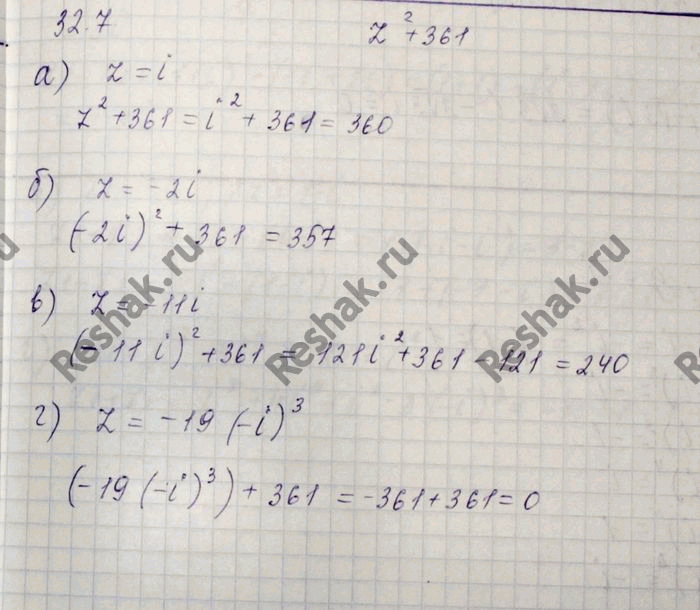 32.7 z² + 361
а) z = i
z² + 361 = i² + 361 = 360
б) z = -2i
(-2i)² + 361 = 357
в) z = -11i
(-11i)² + 361 = 121i² + 361 - 121 = 240
г) z = -19(-i)³
(-19(-i)³) + 361 = -361 + 361 = 0
Reshak.ru
Reshak.ru
Reshak.ru